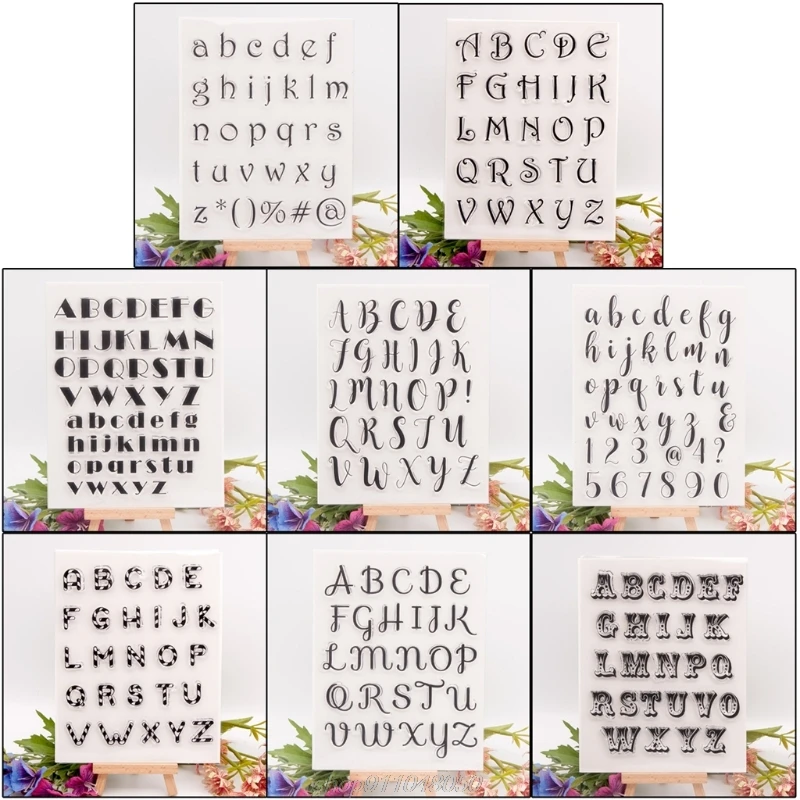 a b c d e f
g h i j k l m
n o p q r s
t u v w x y
z * ( ) % # @
A B C D E
F G H I J K
L M N O P
Q R S T U
V W X Y Z
A B C D E F G
H I J K L M N
O P Q R S T U
V W X Y Z
a b c d e f g
h i j k l m n
o p q r s t u
v w x y z
A B C D E
F G H I J K
L M N O P !
Q R S T U
V W X Y Z
a b c d e f g
h i j k l m n
o p q r s t u
v w x y z &
1 2 3 @ 4 ?
5 6 7 8 9 0
A B C D E
F G H I J K
L M N O P
Q R S T U
V W X Y Z
A B C D E
F G H I J K
L M N O P
Q R S T U
V W X Y Z
A B C D E F
G H I J K
L M N P Q
R S T U V O
W X Y Z